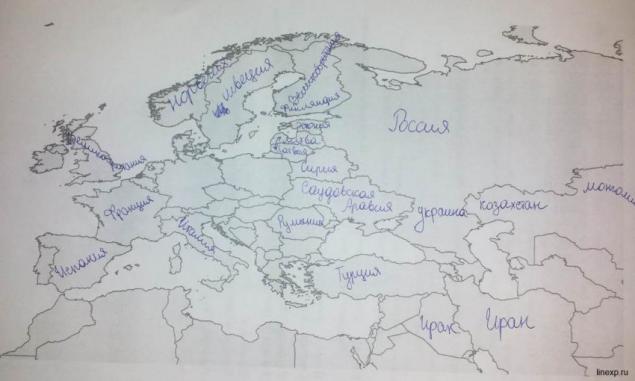 Норвегия
Швеция
Финляндия
Россия
Велико-
британия
Сирия
Саудовская
Аравия
Франция
украина
козахстан
монголи
Италия
Румыния
Испания
Турция
Ирак
Иран
linexp.ru